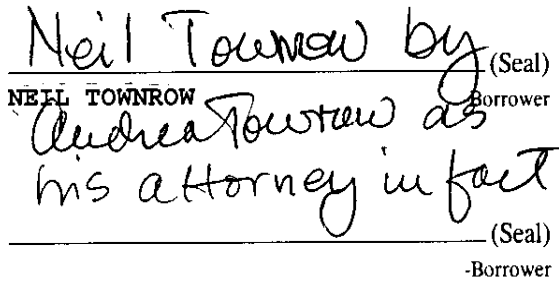 Neil Townrow by (Seal)
NEIL TOWNROW Borrower
Andrea Townrow as
his attorney in fact
(Seal)
-Borrower